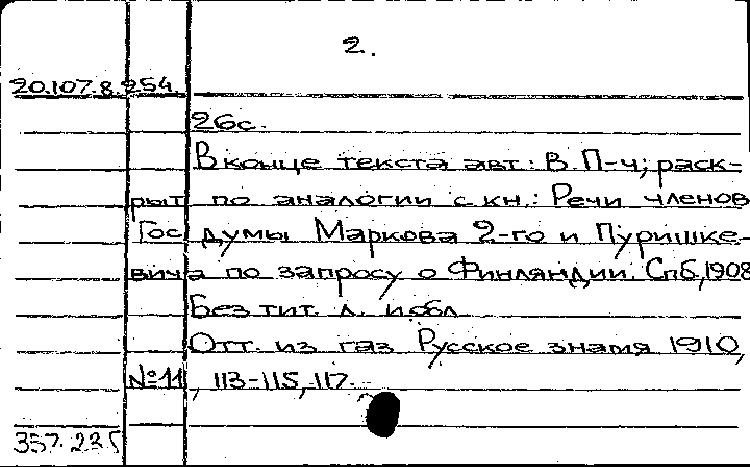 2.
20.107.8.254.
26с.
В конце текста авт: В. П-ч; раск-
рыт по аналогии с кн.: Речи членов
Гос думы Маркова 2-го и Пуришке-
вича по запросу о Финляндии. Спб, 1908
Без тит. л. и обл
Отт. из газ Русское знамя 1910,
№ 11, 113-115, 117.
357.235